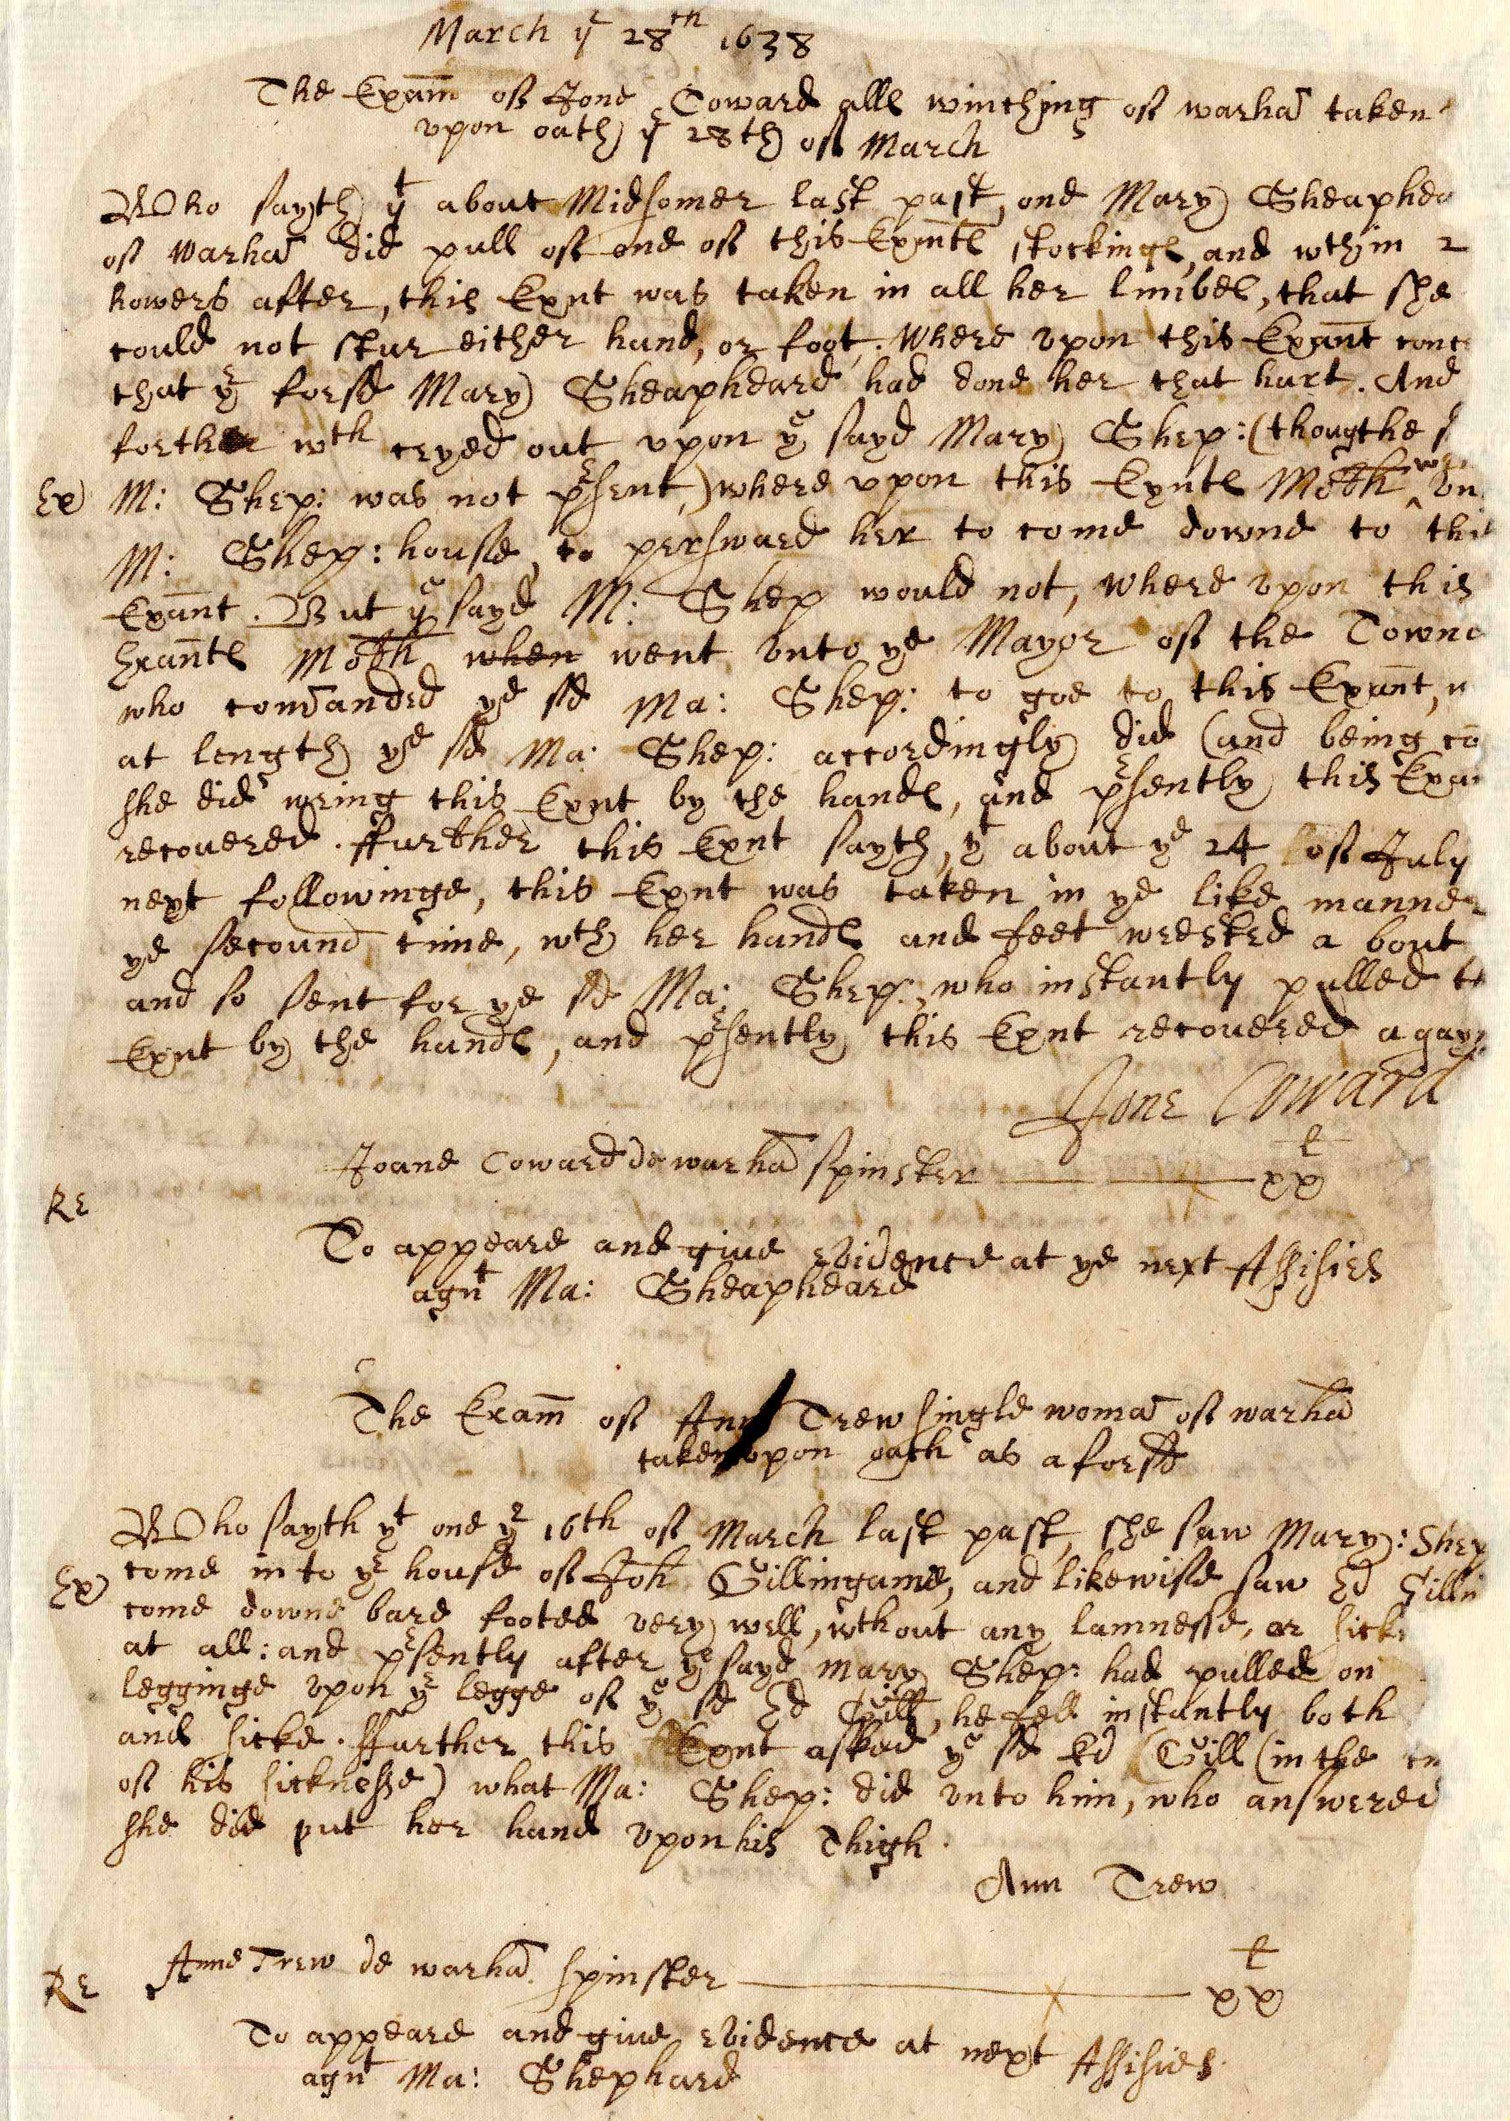 March ye 28th 1638
The Exam of Jone Coward alls winching of warha taken
vpon oath ye 28th of March
Who sayth yt about Midsomer last past, one Mary Sheaphea
of Warha did pull of one of this Exmts stockings, and wthin 2
howers after, this Exnt was taken in all her limbes, that she
could not stur either hand, or foot: Where vpon this Exant conc
that ye forsd Mary Sheapheard had done her that hurt. And
forther wth cryed out vpon ye sayd Mary Shep: (thougthe s
Ex) M: Shep: was not present,) where vpon this Exnts Moth wen vn
M: Shep: house to perswaed her to come downe to this
Exant. But ye sayd M: Shep would not, Where vpon this
Exants Moth when went vnto ye Mayor of the Towne
who comanded ye sd Ma: Shep: to goe to this Exant, w
at length ye sd Ma: Shep: accordingly did (and being co
she did wring this Exnt by the hands, and presently this Exan
recouered. ffurther this Exnt sayth, yt about ye 24 of July
next followinge, this Exnt was taken in ye like manner
ye secound time, wth her hands and feet wrested a bout
and so sent for ye sd Ma: Shep: who instantly pulled t
Exnt by the hands, and presently this Exnt recouered agay
Jone Coward
Joane Coward de warha spinster xx l
RE
To appeare and giue evidence at ye next Assisies
agnt Ma: Sheapheard
The Exam of Ann Trew single woma of warha
taken vpon oath as aforsd
Who sayth yt one ye 16th of March last past, she saw Mary: Shep
come in to ye house of Joh Gillingame, and likewise saw Ed Gilli
Ex) come downe bare footed very well, wthout any lamnesse, or sick
at all: and presently after ye sayd Mary Shep: had pulled on
legginge vpon ye legge of ye sd Ed Gill, he fell instantly both
and sicke. ffurther this Exnt asked ye sd Ed Gill (in the
of his sicknesse) what Ma: Shep: did vnto him, who answered
she did put her hand vpon his Thigh.
Ann Trew
Anne Trew de warha spinster xx l
RE
To appeare and giue evidence at next Assisies
agnt Ma: Shephard